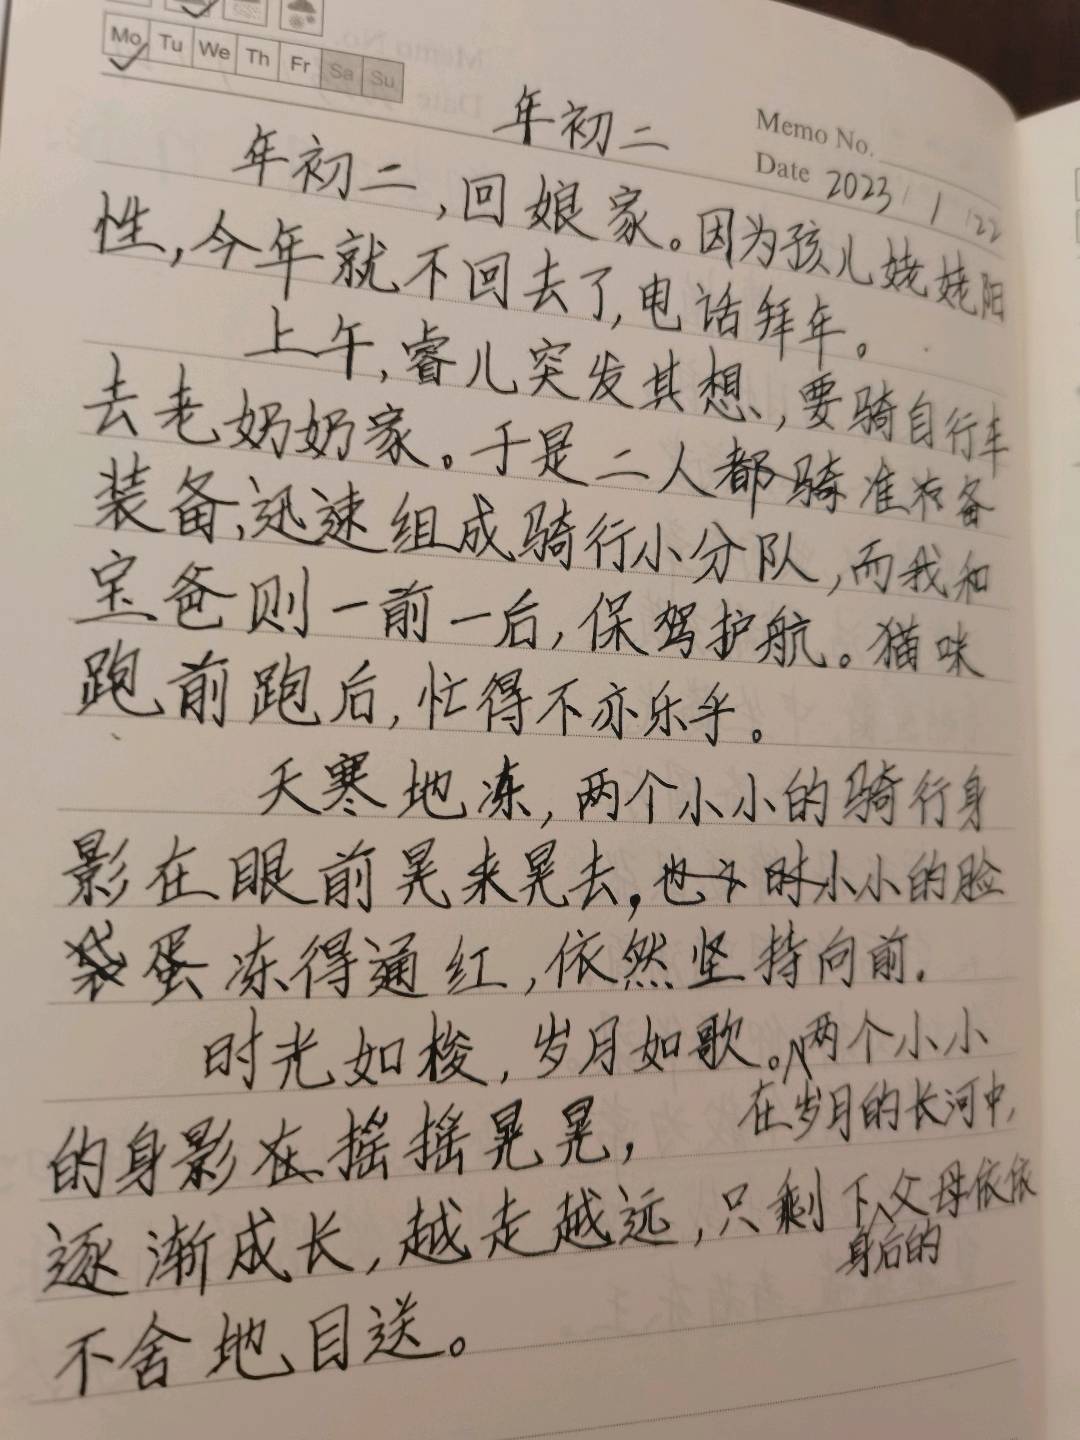 Mo Tu We Th Fr Sa Su
年初二
Memo No.
Date 2023/1/22
年初二,回娘家。因为孩儿姥姥阳
性,今年就不回去了,电话拜年。
上午,睿儿突发其想,要骑自行车
去老奶奶家。于是二人都骑准备
装备,迅速组成骑行小分队,而我和
宝爸则一前一后,保驾护航。猫咪
跑前跑后,忙得不亦乐乎。
天寒地冻,两个小小的骑行身
影在眼前晃来晃去,小小的脸
蛋冻得通红,依然坚持向前.
时光如梭,岁月如歌。两个小小
在岁月的长河中,
的身影在摇摇晃晃,
逐渐成长,越走越远,只剩下父母依依
身后的
不舍地目送。